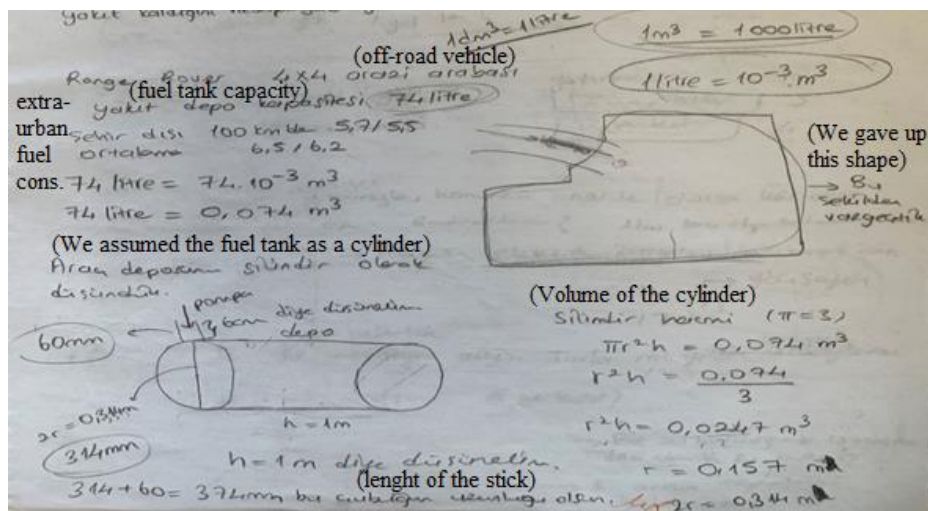 yakıt kaldığını
1dm³ = 1 litre
1m³ = 1000 litre
(off-road vehicle)
Range Rover 4x4 arazi arabası
1 litre = 10⁻³ m³
(fuel tank capacity)
yakıt depo kapasitesi 74 litre
extra-urban fuel cons.
şehir dışı 100 km'de 5,7/5,5
ortalama 6,5/6,2
(We gave up this shape)
Bu şekilden vazgeçtik
74 litre = 74.10⁻³ m³
74 litre = 0,074 m³
(We assumed the fuel tank as a cylinder)
Araç deposunu silindir olarak
düşündük.
pompa
6cm diye düşünelim
depo
60mm
2r = 0,314m
314mm
h = 1m
h = 1m diye düşünelim.
(lenght of the stick)
314+60 = 374mm bu çubuğun uzunluğu olsun.
(Volume of the cylinder)
Silindir hacmi (π=3)
πr²h = 0,074 m³
r²h = 0,074
3
r²h = 0,0247 m³
r = 0,157 m
2r = 0,314 m